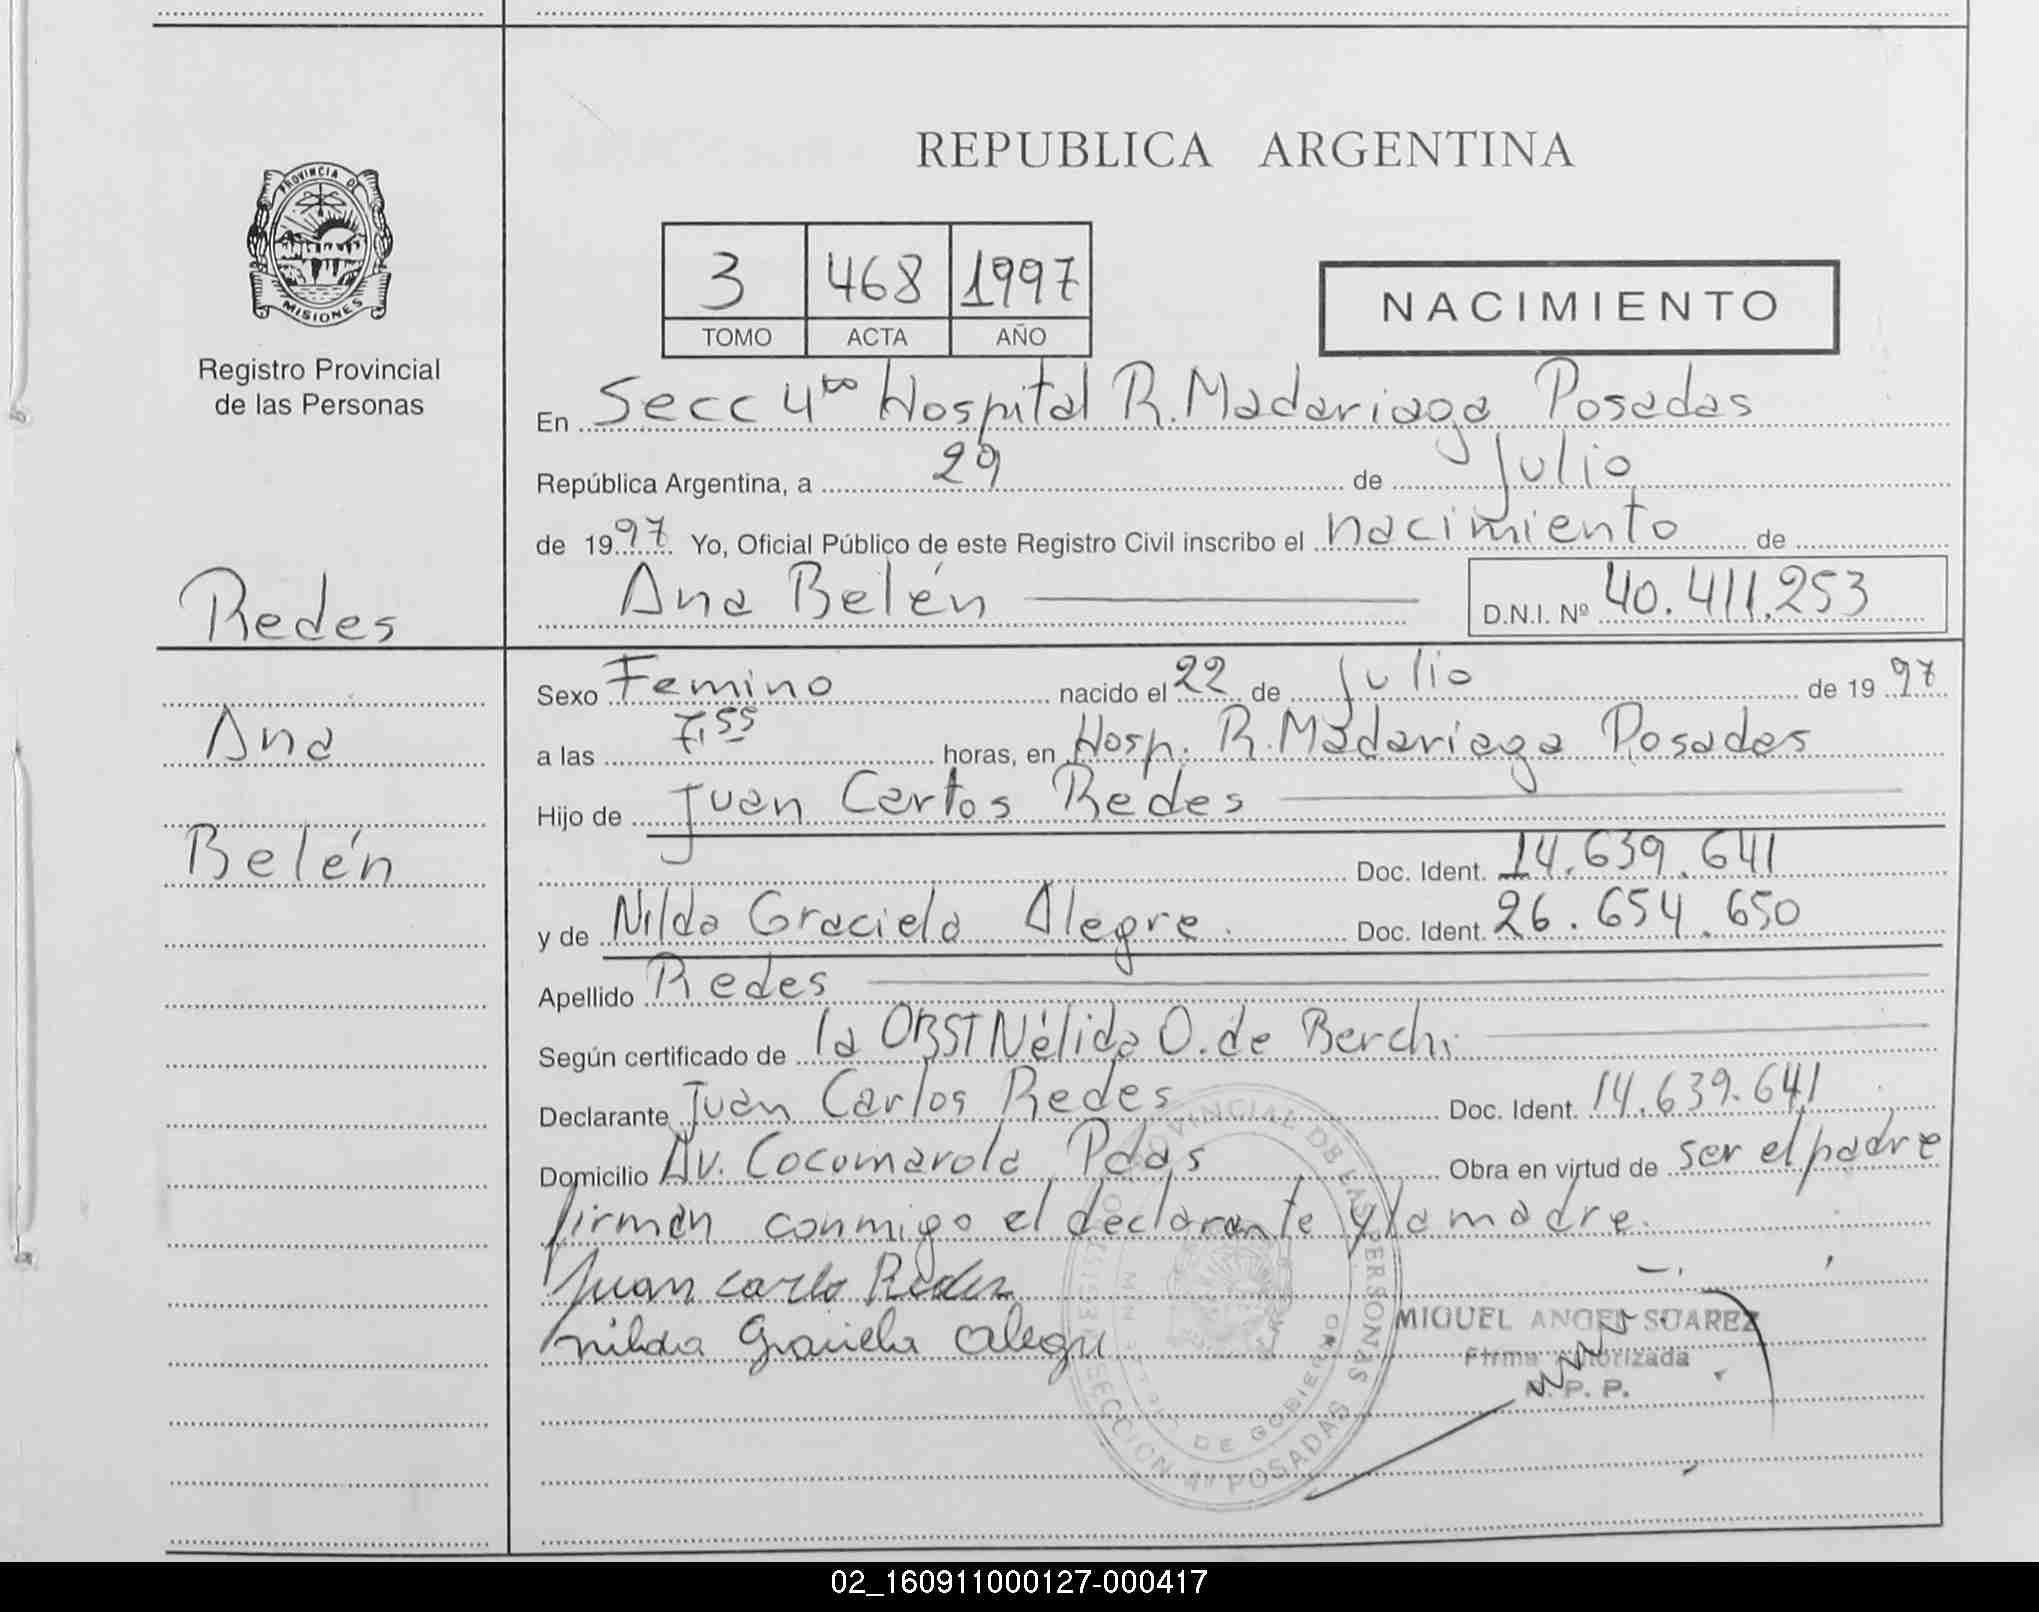 REPUBLICA ARGENTINA
PROVINCIA DE
MISIONES
Registro Provincial
de las Personas
3 468 1997
TOMO ACTA AÑO
NACIMIENTO
En Secc 4ta Hospital R. Madariaga Posadas
República Argentina, a 29 de Julio
de 1997 Yo, Oficial Público de este Registro Civil inscribo el nacimiento de
Ana Belén D.N.I. Nº 40.411.253
Redes
Ana
Belén
Sexo Femino nacido el 22 de Julio de 1997
a las 7,55 horas, en Hosp. R. Madariaga Posadas
Hijo de Juan Carlos Redes
Doc. Ident. 14.639.641
y de Nilda Graciela Alegre. Doc. Ident. 26.654.650
Apellido Redes
Según certificado de la OBST Nélida O. de Berchi
Declarante Juan Carlos Redes Doc. Ident. 14.639.641
Domicilio Av. Cocomarola Pdas Obra en virtud de ser el padre
firman conmigo el declarante y la madre.
Juan Carlo Redes
nilda Graciela Alegre
MIGUEL ANGEL SUAREZ
Firma Autorizada
R. P. P.
PROVINCIAL DE LAS PERSONAS
SECCION 4ª POSADAS
DE GOBIERNO
02_160911000127-000417